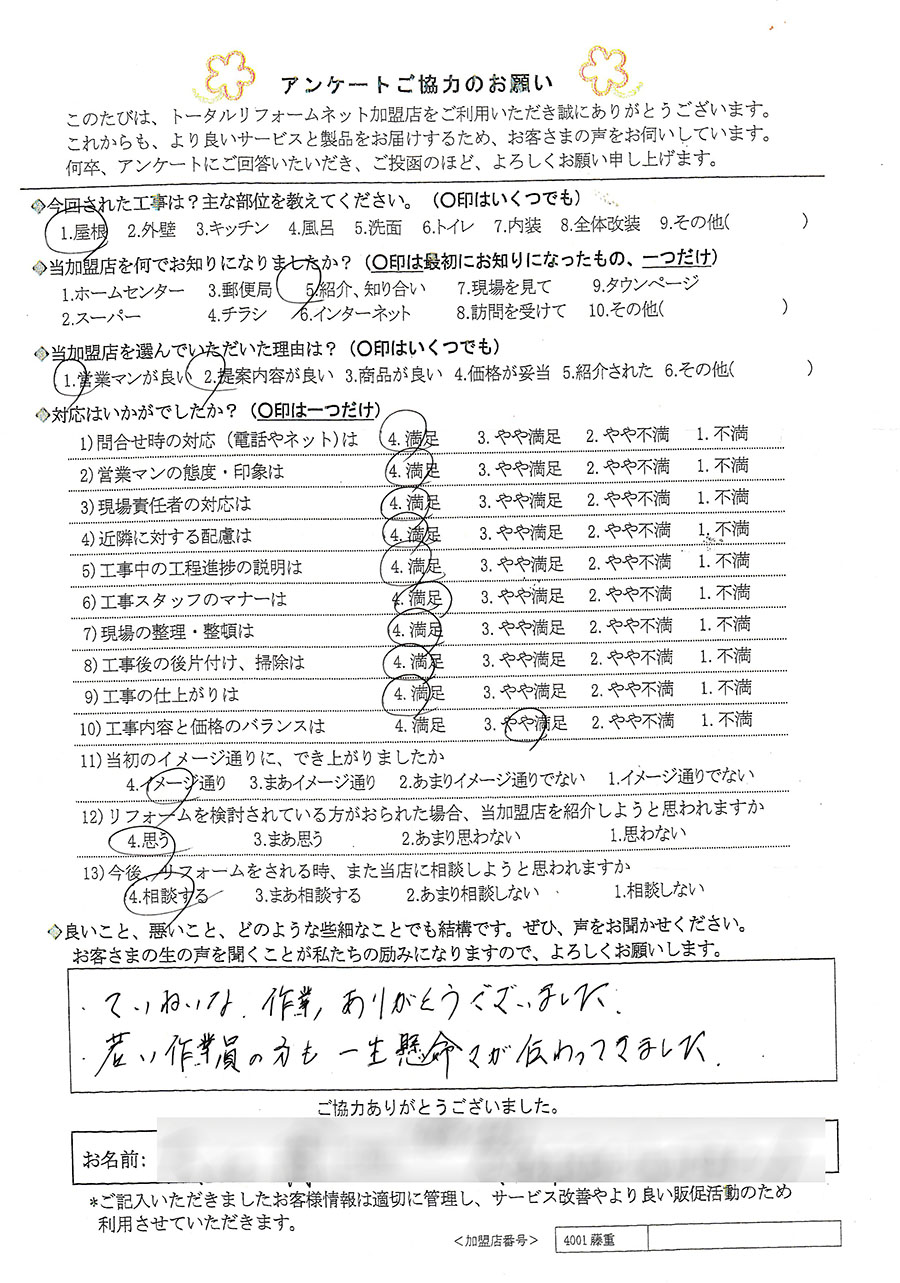 アンケートご協力のお願い
このたびは、トータルリフォームネット加盟店をご利用いただき誠にありがとうございます。
これからも、より良いサービスと製品をお届けするため、お客さまの声をお伺いしています。
何卒、アンケートにご回答いたいだき、ご投函のほど、よろしくお願い申し上げます。
◆今回された工事は？主な部位を教えてください。（〇印はいくつでも）
1.屋根 2.外壁 3.キッチン 4.風呂 5.洗面 6.トイレ 7.内装 8.全体改装 9.その他( )
◆当加盟店を何でお知りになりましたか？（〇印は最初にお知りになったもの、一つだけ）
1.ホームセンター 3.郵便局 5.紹介、知り合い 7.現場を見て 9.タウンページ
2.スーパー 4.チラシ 6.インターネット 8.訪問を受けて 10.その他( )
◆当加盟店を選んでいただいた理由は？（〇印はいくつでも）
1.営業マンが良い 2.提案内容が良い 3.商品が良い 4.価格が妥当 5.紹介された 6.その他( )
◆対応はいかがでしたか？（〇印は一つだけ）
1)問合せ時の対応（電話やネット）は 4.満足 3.やや満足 2.やや不満 1.不満
2)営業マンの態度・印象は 4.満足 3.やや満足 2.やや不満 1.不満
3)現場責任者の対応は 4.満足 3.やや満足 2.やや不満 1.不満
4)近隣に対する配慮は 4.満足 3.やや満足 2.やや不満 1.不満
5)工事中の工程進捗の説明は 4.満足 3.やや満足 2.やや不満 1.不満
6)工事スタッフのマナーは 4.満足 3.やや満足 2.やや不満 1.不満
7)現場の整理・整頓は 4.満足 3.やや満足 2.やや不満 1.不満
8)工事後の後片付け、掃除は 4.満足 3.やや満足 2.やや不満 1.不満
9)工事の仕上がりは 4.満足 3.やや満足 2.やや不満 1.不満
10)工事内容と価格のバランスは 4.満足 3.やや満足 2.やや不満 1.不満
11)当初のイメージ通りに、でき上がりましたか
4.イメージ通り 3.まあイメージ通り 2.あまりイメージ通りでない 1.イメージ通りでない
12)リフォームを検討されている方がおられた場合、当加盟店を紹介しようと思われますか
4.思う 3.まあ思う 2.あまり思わない 1.思わない
13)今後、リフォームをされる時、また当店に相談しようと思われますか
4.相談する 3.まあ相談する 2.あまり相談しない 1.相談しない
◆良いこと、悪いこと、どのような些細なことでも結構です。ぜひ、声をお聞かせください。
お客さまの生の声を聞くことが私たちの励みになりますので、よろしくお願いします。
・ていねいな、作業、ありがとうございました。
・若い作業員の方も 一生懸命さが伝わってきました。
ご協力ありがとうございました。
お名前:
*ご記入いただきましたお客様情報は適切に管理し、サービス改善やより良い販促活動のため
利用させていただきます。
＜加盟店番号＞ 4001 藤重